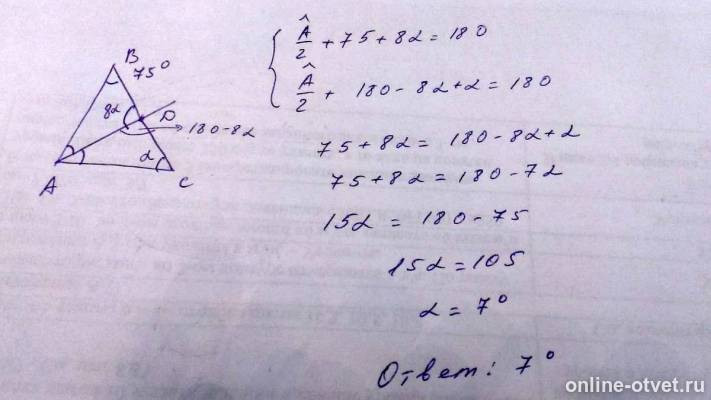 B
75°
8α
D
180-8α
A
α
C
Â/2 + 75 + 8α = 180
Â/2 + 180 - 8α + α = 180
75 + 8α = 180 - 8α + α
75 + 8α = 180 - 7α
15α = 180 - 75
15α = 105
α = 7°
Ответ: 7°
online-otvet.ru